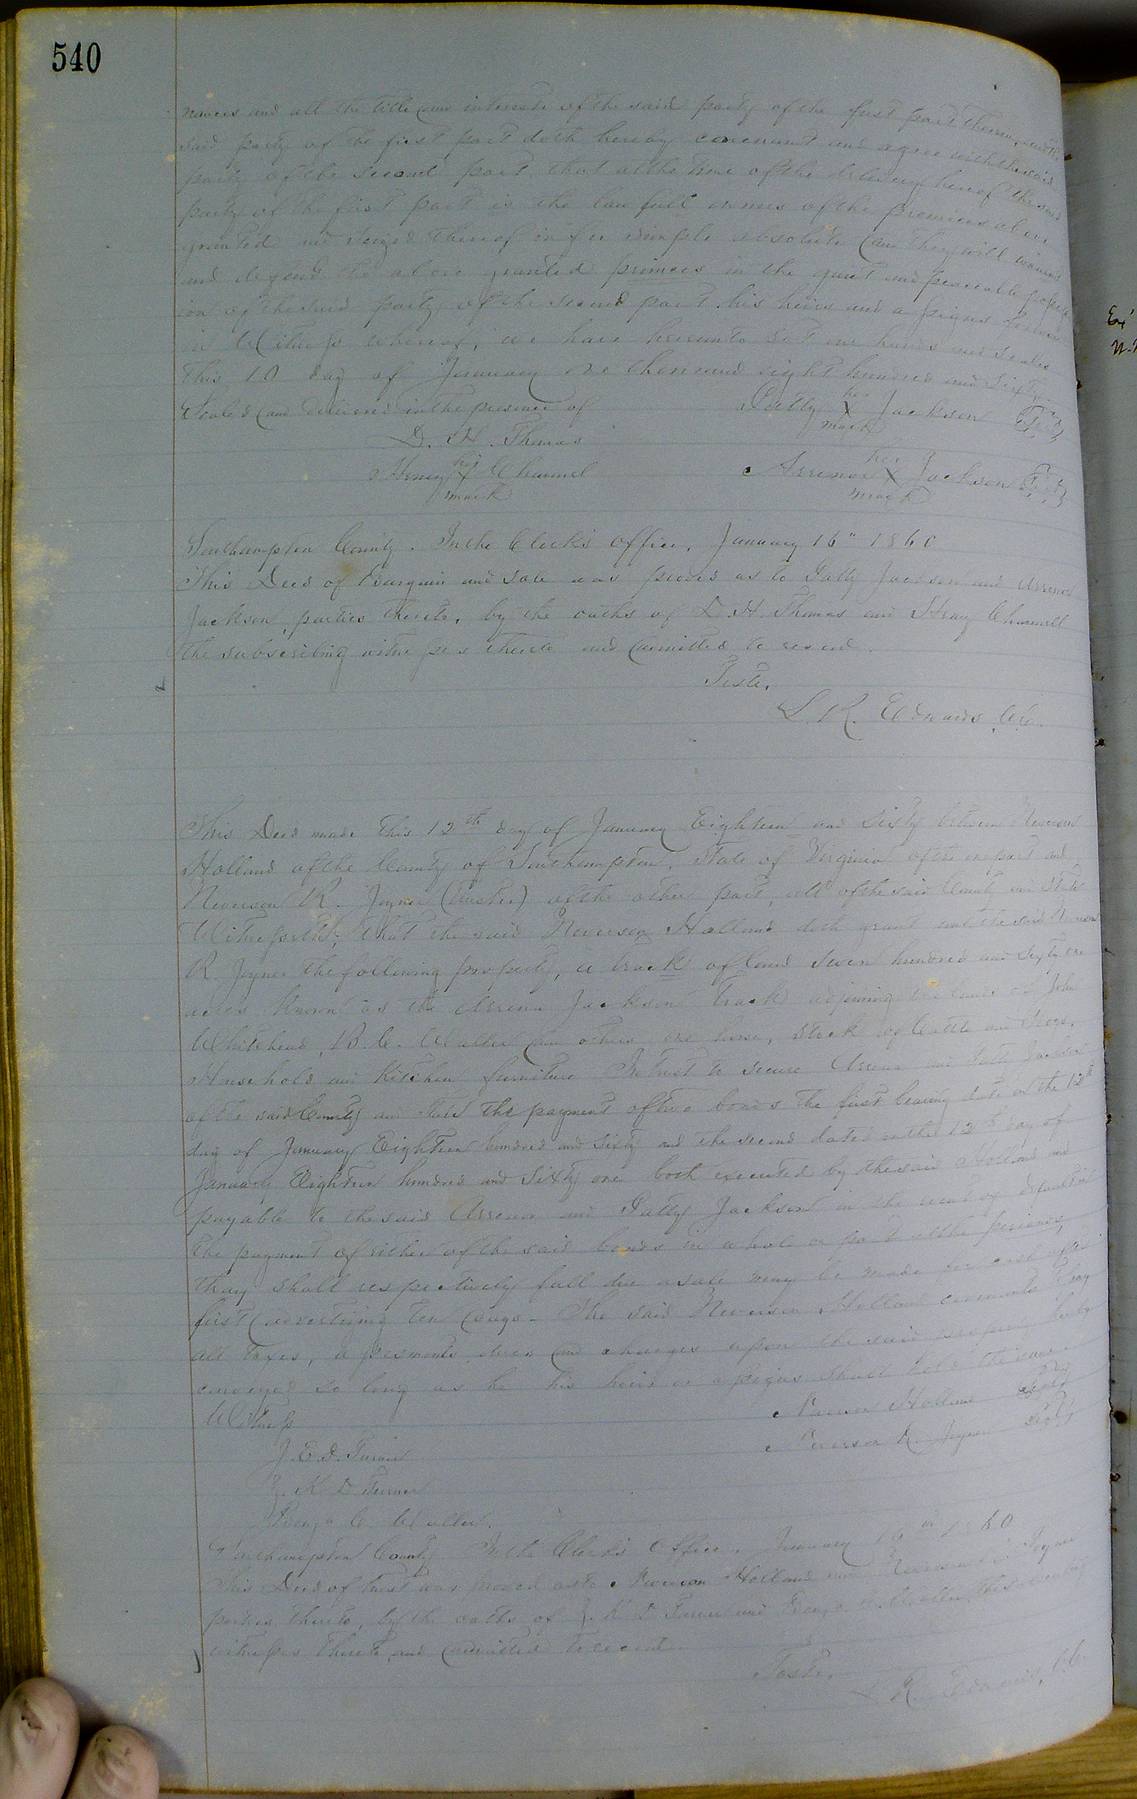 540
nances and all the title and interests of the said party of the first part therein, and the
said party of the first part doth hereby covenant and agree with the said
party of the second part, that at the time of the delivery hereof the said
party of the first part is the lawfull owners of the premises above
granted and seized thereof in fee simple absolute and they will warrant
and defend the above granted primces in the quiet and peaceable possess
ion of the said party of the second part his heirs and assigns forever
in Witness whereof, we have hereunto set our hands and seales
this 10 day of January one thousand eight hundred and sixty
Sealed and delivered in the presence of Patty her X mark Jackson
D. H. Thomas
Henry his X mark Channel Arrena her X mark Jackson
Southampton County. In the Clerk's office, January 16" 1860
This Deed of Bargain and Sale was proved as to Patty Jackson and Arrena
Jackson, parties thereto, by the oaths of D H. Thomas and Henry Channell
the subscribing witnesses thereto and admitted to record.
Teste,
L. R. Edwards, C.C.
This Deed made this 12th day of January Eighteen and Sixty between Neverson
Holland of the County of Southampton, State of Virginia of the one part and
Neverson R. Joyner (Trustee) of the other part, all of the said County and State
Witnesseth, that the said Neverson Holland doth grant unto the said Neverson
R. Joyner the following property, a track of land hundred and sixty one
acres known as the Arrena Jackson track adjoining the lands of John
Whitehead, B. C. Waller and others one horse, stock of Cattle and Hogs,
Household and Kitchen furniture In trust to secure Arrena and Patty Jackson
of the said County and State the payment of two bonds the first bearing date on the 12th
day of January Eighteen hundred and sixty and the second dated on the 12th day of
January Eighteen hundred and Sixty one both executed by the said Holland and
payable to the said Arrena and Patty Jackson in the event of default in
the payment of either of the said bonds in whole or part at the periods
they shall respectively fall due a sale may be made for cash after
first advertising ten days. The said Neverson Holland covenants to pay
all taxes, assessments, dues and charges upon the said property hereby
conveyed so long as he his heirs or assigns shall hold the same.
Witness Neverson Holland Seal
J. E. D. Turner Neverson R. Joyner Seal
J. K. D. Turner
C. Waller.
Southampton County In the Clerk's Office, January 1860
This Deed of trust was proved as to Neverson Holland and Neverson R Joyner
parties thereto, by the oaths of J. K. D Turner and C Waller,
witnesses thereto, and admitted to record
Teste,
L R. Edwards, C.C.